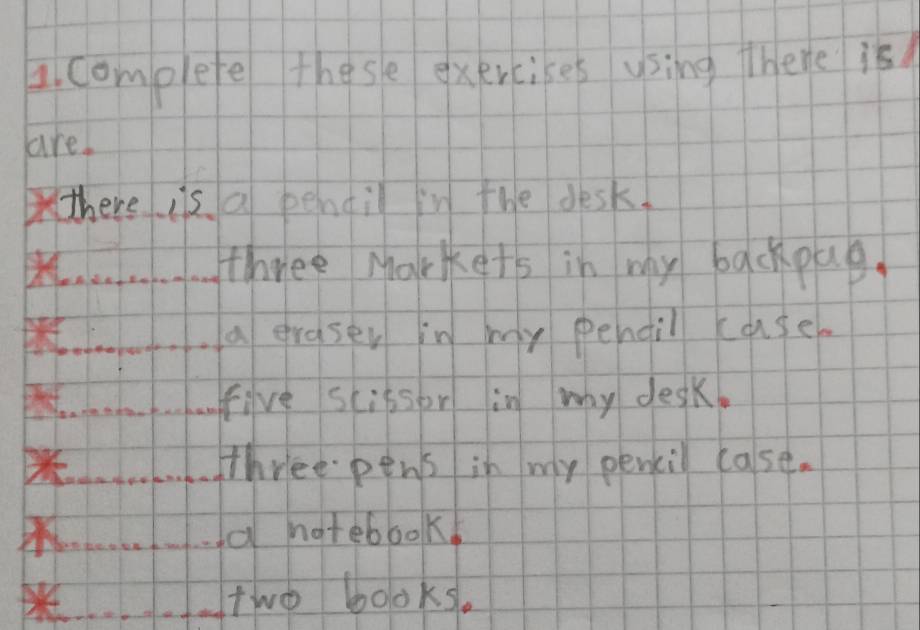 1. Complete these exercises using There is/
are.
*There is a pencil in the desk.
*............three Markets in my backpag.
*............a eraser in my pencil case.
*............five scissor in my desk.
*............three pens in my pencil case.
*............a notebook.
*............two books.